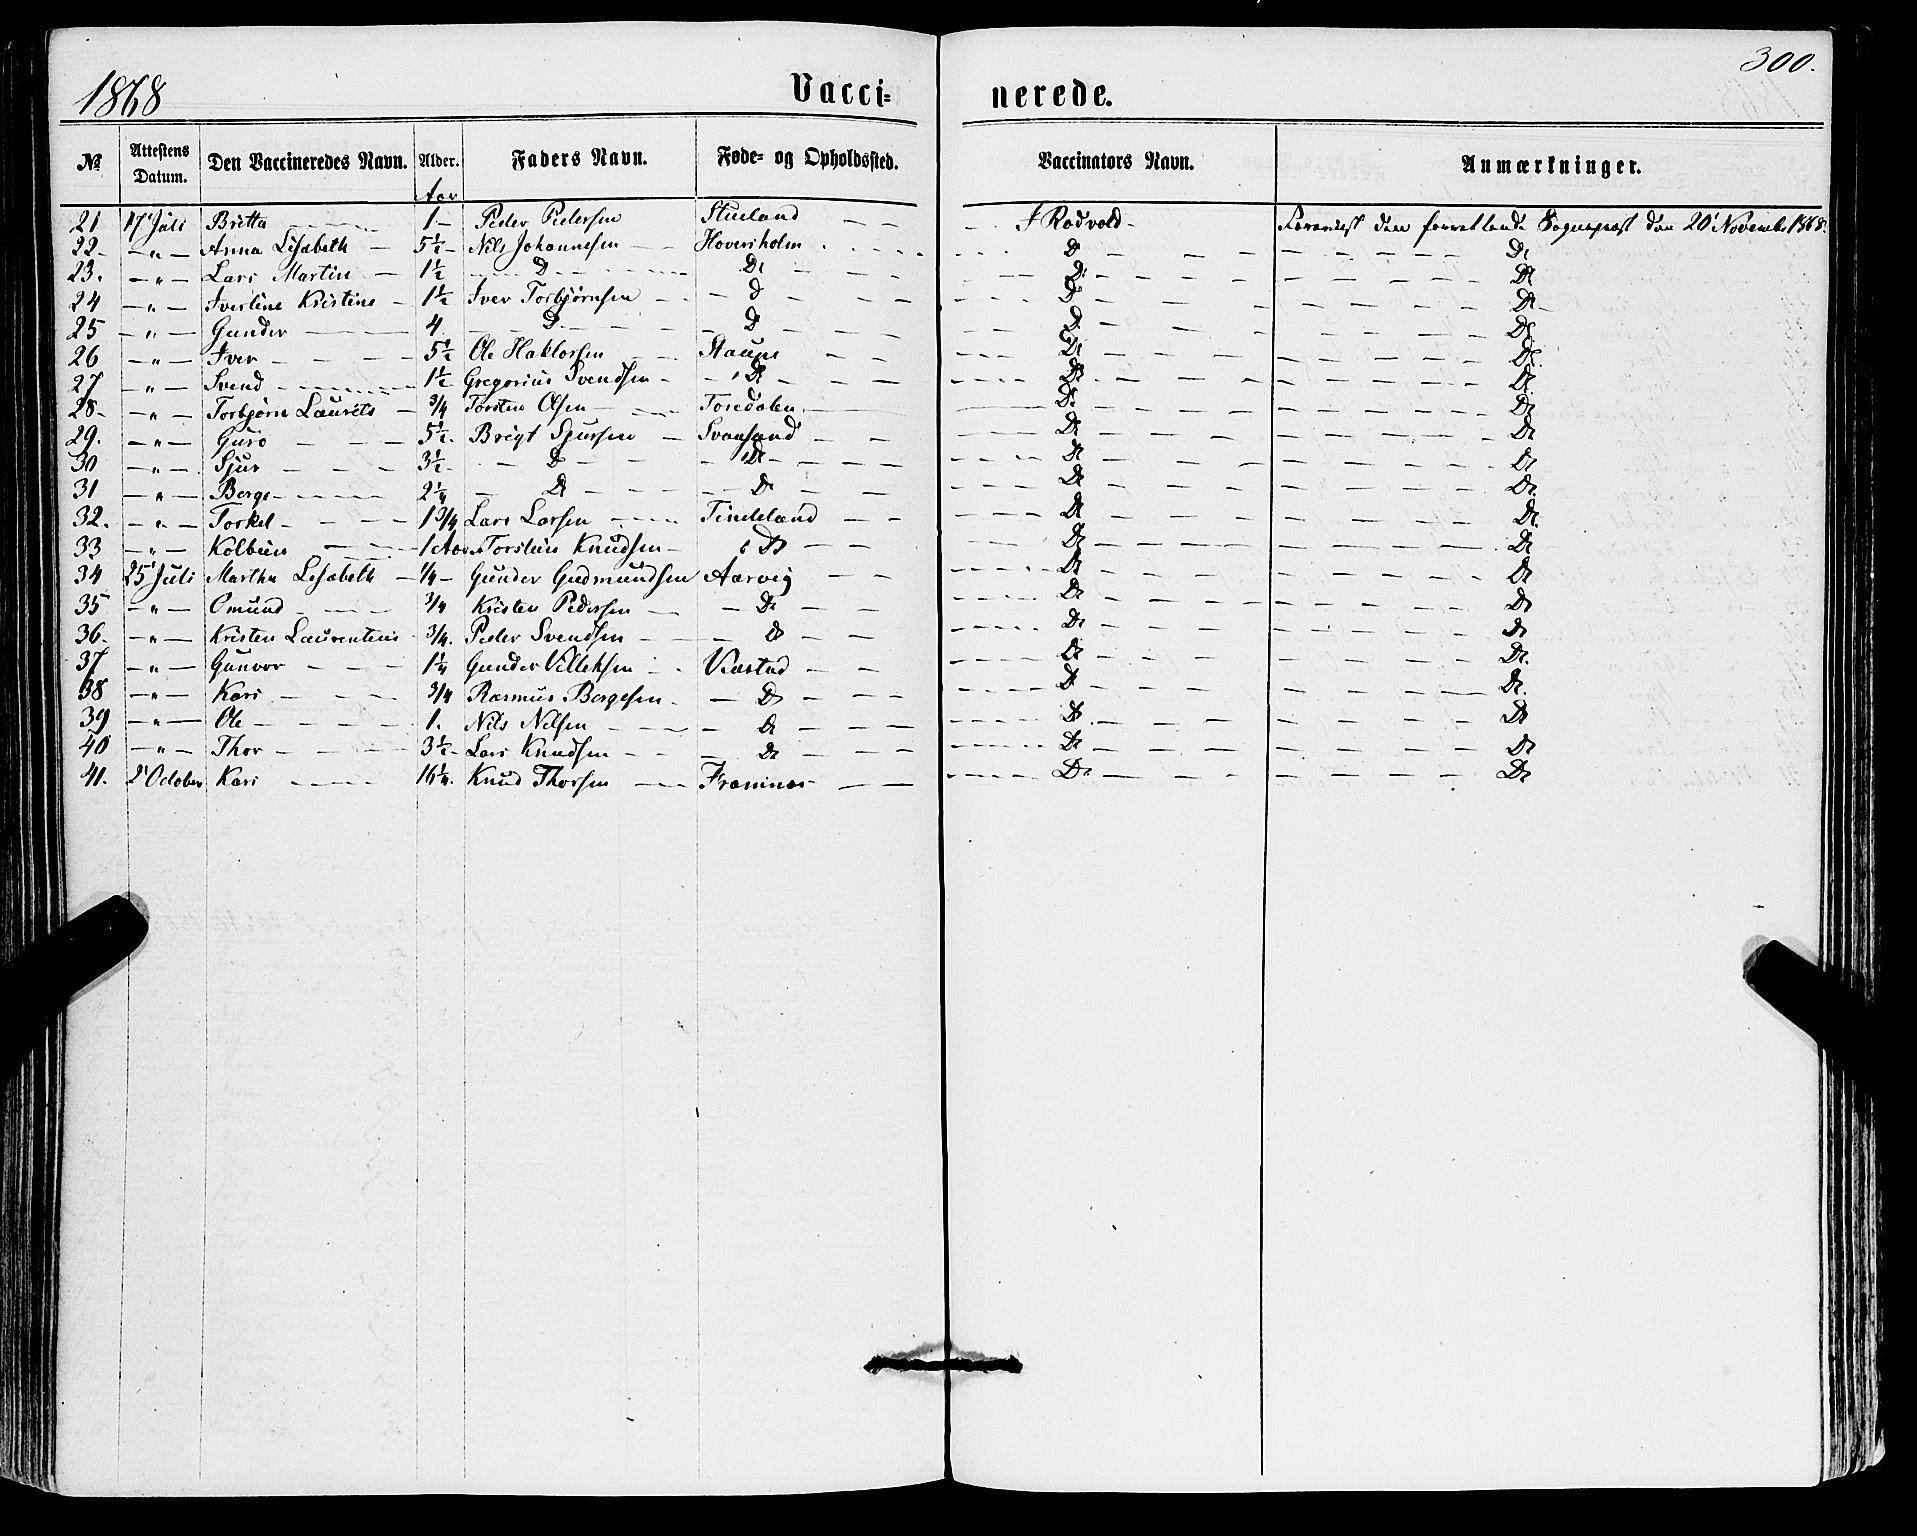 300.
1868 Vacci= nerede.
No. Attestens Datum. Den Vaccineredes Navn. Alder. Faders Navn. Føde- og Opholdssted. Vaccinators Navn. Anmærkninger.
Aar
21 17' Juli Britta 1 - Peder Pedersen Stueland J Rødvold Foreviist den forrettende Sognepræst den 20' November 1868.
22 - " - Anna Lisabeth 5½ - Nils Johannesen Hoversholm Do Do
23. - " - Lars Martin 1½ D Do Do Do
24 - " - Ivertine Kristine 1½ Iver Torbjørnsen D D Do
25 - " - Gunder 4 D D D Do
26 - " - Iver 5½ Ole Haktorsen Staupe Do Do
27 - " - Svend 1½ - Gregorius Svendsen Do Do Do
28 - " - Torbjørn Laurits ¾ Torsten Olsen Toredalen Do Do
29. - " - Guro 5½ Brigt Sjursen Svansund Do Do
30 - " - Sjur 3½ - D Do Do Do
31 - " - Berge 2¼ Do Do Do Do
32. - " - Torkel 1 3/4 Lars Larsen Tindeland Do Do
33 - " - Kolbein 1 Aar Torstein Knudsen Do Do Do
34 25' Juli Martha Lisabeth ¼ - Gunder Gudmundsen Aarvig Do Do
35 - " - Omund ¾ Kristen Pedersen Do Do Do
36. - " - Kristen Laurentius ¾. Peder Svendsen Do Do Do
37 - " - Gunvor 1¼ Gunder Villeksen Viestad Do Do
38 - " - Kari ¾ Rasmus Bergesen Do Do Do
39 - " - Ole 1. Nils Nilsen Do Do Do
40 - " - Thor 3½ - Lars Knudsen Do Do Do
41. 2' October Kari 16¼. Knud Thorsen Framnæs Do Do